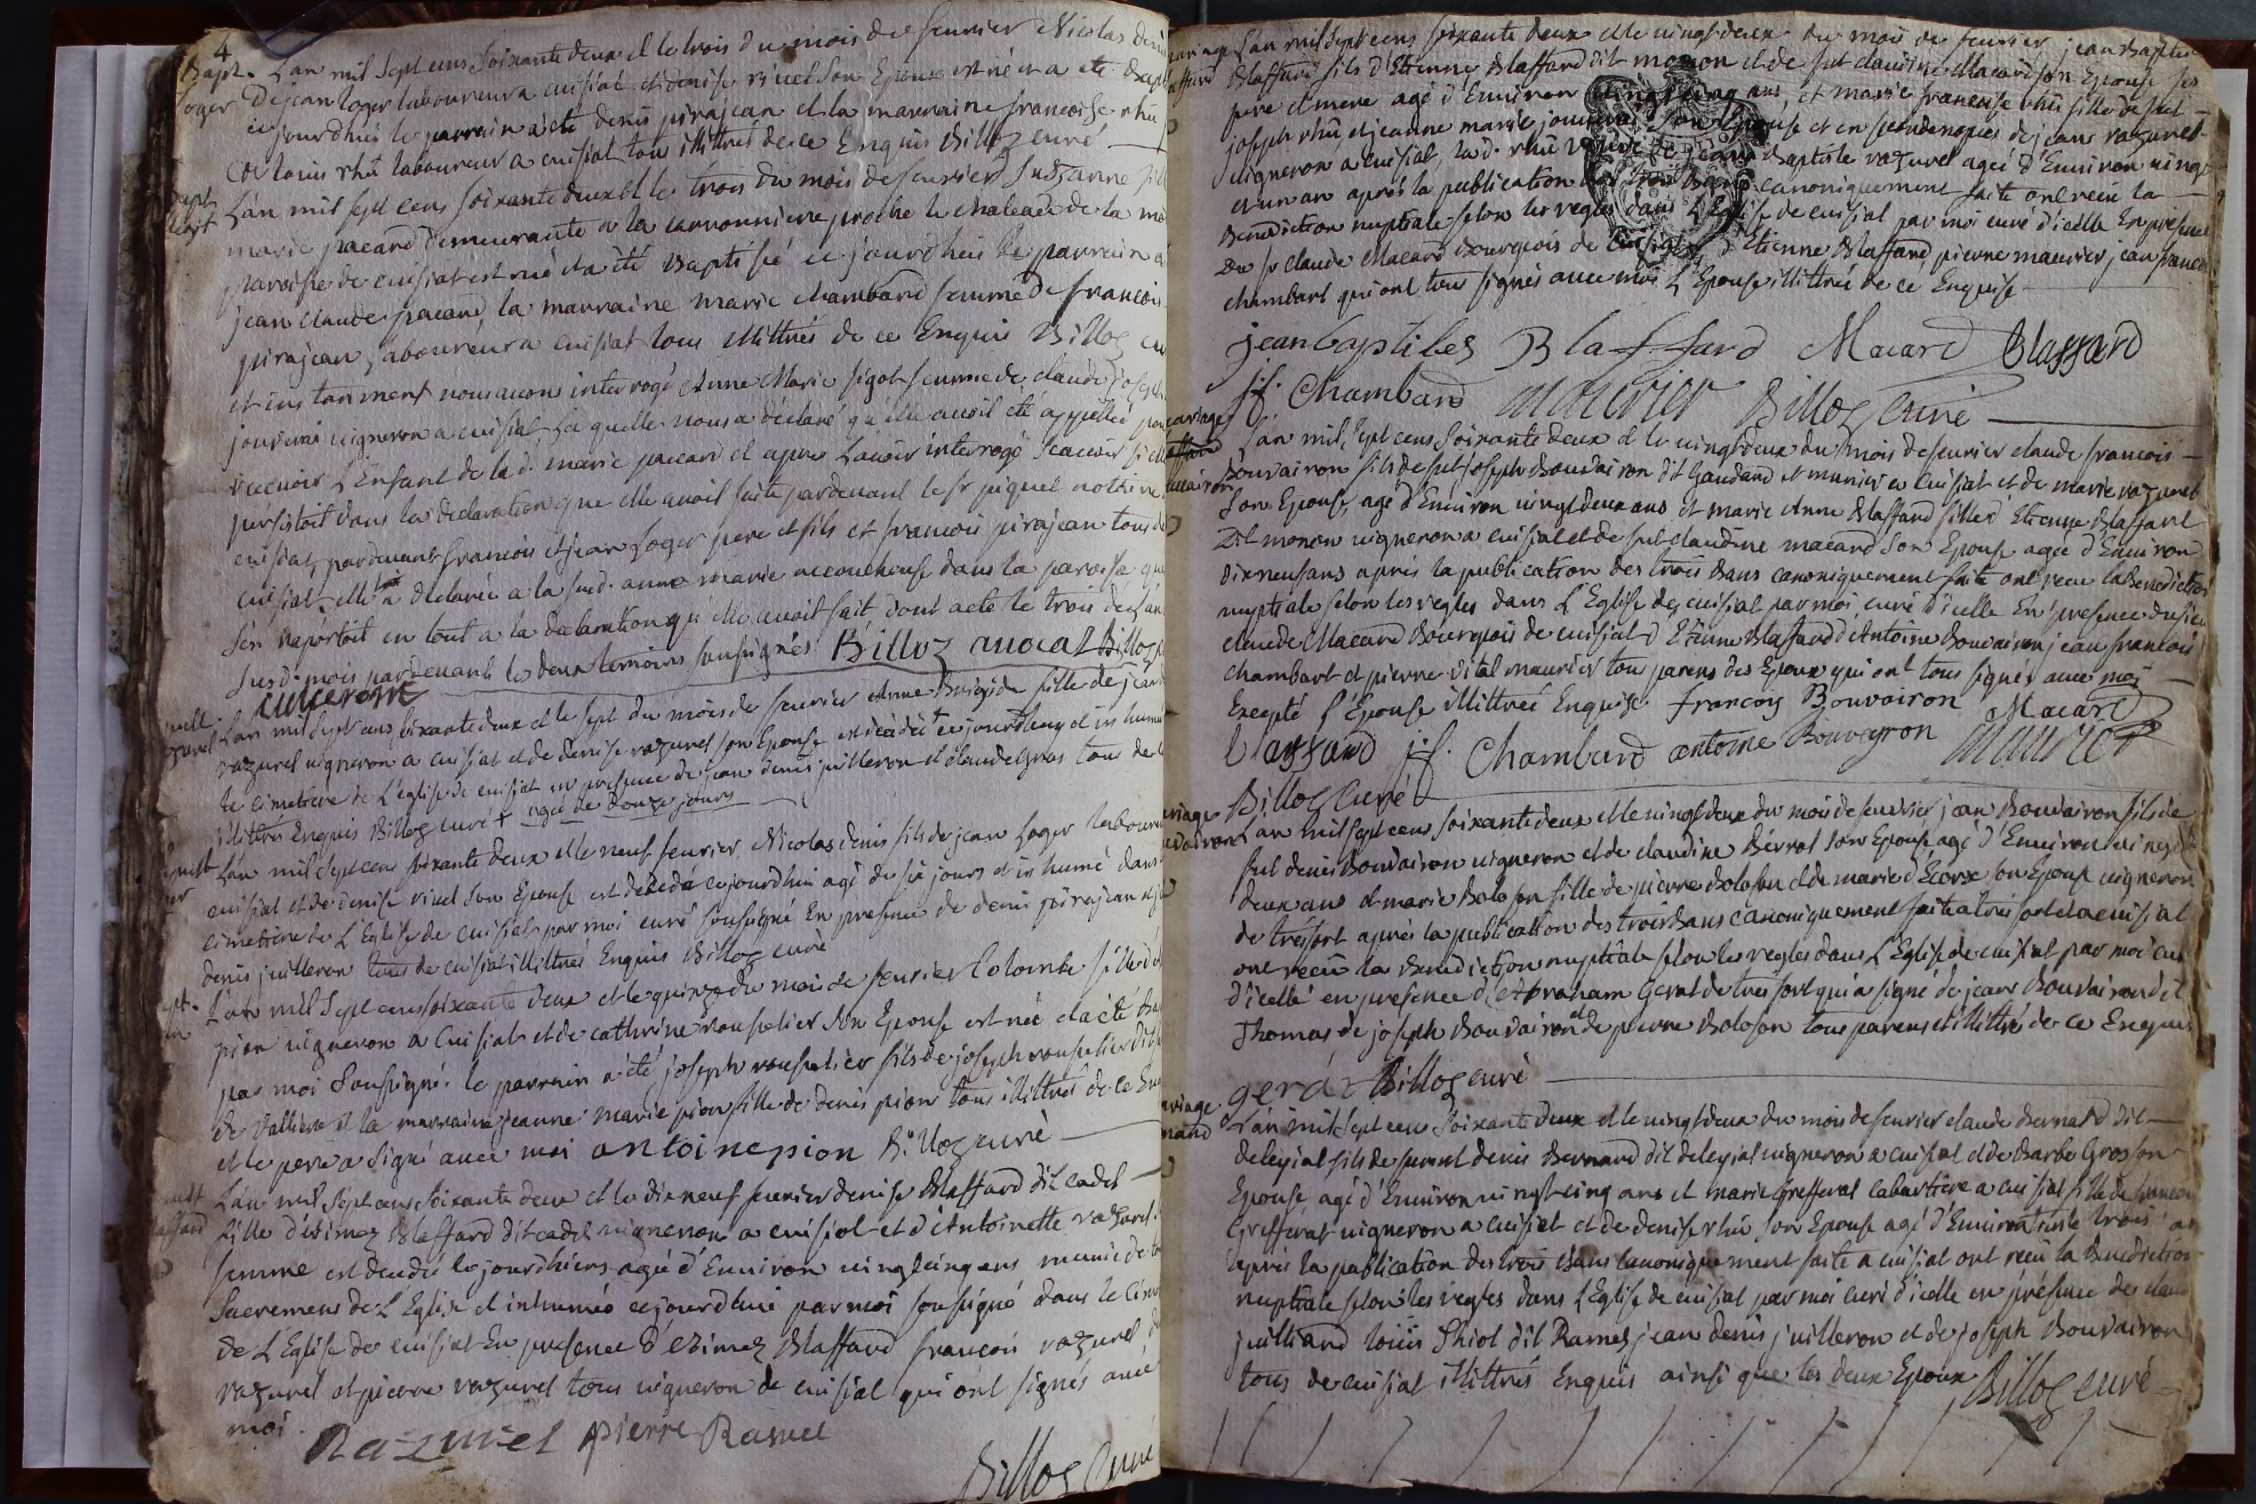 4
Bapt. L'an mil sept cens soixante deux et le trois du mois de feurier Nicolas denis
Loger De jean loger laboureur a cuisiat et denise riuel son Epouse est né et a eté bapt
ce jourdhui le parrain a eté denis pirajean et la marraine francoise rhu
de louis rhu laboureur a cuisiat tous illittrés de ce Enquis Billoz curé
bapt L'an mil sept cens soixante deux et le trois du mois de feurier Suzanne fill
marie pacard demeurante a la carronniere proche le chateau de la
paroisse de cuisiat est née et a été baptisée ce jourdhui le parrain a
jean claude pacard, la marraine marie chambard femme de francois
pirajean laboureur a cuisiat tous illittrés de ce Enquis Billoz cu
et instanment nous auons interrogé Anne Marie sigot femme de claude joseph
jouuerai uigneron a cuisiat La quelle nous a déclaré qu'elle auoit eté appellée pour
receuoir L'Enfant de la d. marie pacard et apres L'auoir interrogé scauoir si elle
persistoit dans la declaration que elle auoit faite pardeuant le sr piquet notaire
cuisiat, pardeuant francois et jean Loger pere et fils et francois pirajean tous de
cuisiat elle a déclarée a la sud. anne marie accoucheuse dans la paroisse que
s'en raportoit en tout a la declaration qu'elle auoit fait, dont acte le trois de L'an
susd. mois pardeuant les deux temoins soussignés Billoz auocat Billoz

L'an mil sept cens soixante deux et le sept du mois de feurier Anne Brigide fille de jean
razurel uigneron a cuisiat et de denise razurel son Epouse est décédée + ce jourdhuy et inhumé
le cimetiere de L'eglise de cuisiat en presence de jean denis juilleron et claude gras tous de
illittrés Enquis Billoz curé + agée de douze jours
L'an mil sept cens soixante deux et le neuf feurier Nicolas denis fils de jean Loger laboureur
cuisiat et de denise riuel son Epouse est décédé cejourdhui agé de six jours et inhumé dans
cimetiere de L'Eglise de cuisiat par moi curé soussigné En presence de denis pirajean et j
denis juilleron tous de cuisiat illittrés Enquis Billoz curé
L'an mil sept cens soixante deux et le quinze du mois de feurier Colombe fille d
pion uigneron a Cuisiat et de cathrine rousselier son Epouse est née et a eté ba
par moi soussigné. le parrain a été joseph rousselier fils de joseph rousselier dit
de valliere et la marraine jeanne marie pion fille de denis pion tous illittrés de ce En
et le pere a signé auec moi antoine pion Billoz curé
L'an mil sept cens soixante deux et le dix neuf feurier denise Blaffard dit cadet
fille d'etinez Blaffard dit cadet uigneron a cuisiat et d'Antoinette razurel
femme est décédée le jourdhiers agée d'Enuiron uingt cinq ans munie de to
Sacremens de L'Eglise et inhumée cejourdhui par moi soussigné dans le Cim
de L'Eglise de cuisiat En presence d'etinez Blaffard francois razurel d
razurel et pierre razurel tous uigneron de cuisiat qui ont signés auec
moi.
Razurel pierre Rasuel
Billoz Curé
L'an mil sept cens soixante deux et le uingt deux du mois de feurier jean Baptiste
Blaffard fils d'Etienne Blaffard dit monon et de fut claudine Macard son Epouse ses
pere et mere agé d'Enuiron uingt cinq ans, et marie francoise rhu fille de fut
joseph rhu et jeanne marie jouuerai son Epouse et en secondenopces de jean razurel
uigneron a cuisiat, la d. rhu veuve de jean Baptiste razurel agée d'Enuiron uingt
et un an aprés la publication des trois bans canoniquement faite ont recu la
Benediction nuptiale selon les regles dans L'Eglise de cuisiat par moi curé d'icelle En presence
Du sr claude Macard Bourgeois de Cuisiat, d'Etienne Blaffard, pierre maurier jean francois
chambard qui ont tous signés auec moi L'Epouse illittrée de ce Enquise
jean baptistes Blaffard Macard Blaffard
j.f. Chambard maurier Billoz curé
mariage L'an mil sept cens soixante deux et le uingt deux du mois de feurier claude francois
Bouvairon fils de fut joseph Bouvairon dit Gaudard et munier a cuisiat et de marie razurel
son Epouse, agé d'Enuiron uingt deux ans et marie Anne Blaffard fille d'Etienne Blaffard
Dit monon uigneron a cuisiat et de fut claudine macard son Epouse agée d'Enuiron
dix neuf ans aprés la publication des trois bans canoniquement faite ont recu la Benediction
nuptiale selon les regles dans L'Eglise de cuisiat par moi curé d'icelle En presence du sieur
claude Macard Bourgeois de cuisiat d'Etienne Blaffard d'Antoine Bouvairon jean francois
chambart et pierre vital maurier tous parens des Epoux qui ont tous signés auec moi
Excepté L'Epouse illittrée Enquise francois Bouvairon Macard
blaffard j.f. Chambard antoine Bouvayron maurier
Billoz Curé
L'an mil sept cens soixante deux et le uingt deux du mois de feurier jean Bouvairon fils de
fut denis Bouvairon uigneron et de claudine Bérrot son Epouse agé d'Enuiron uingt
deux ans et marie Boloson fille de pierre Boloson et de marie d'Ecorse son Epouse uigneron
de trésfort aprés la publication des trois bans canoniquement faite a trésfort et a cuisiat
ont recu la benediction nuptiale selon les regles dans L'Eglise de cuisiat par moi curé
d'icelle en presence d'Abraham Gerat de tresfort qui a signé de jean Bouvairon dit
Thomas de joseph Bouvairon et de pierre Boloson tous parens et illittrés de ce Enquis
gerat Billoz curé
L'an mil sept cens soixante deux et le uingt deux du mois de feurier claude Bernard dit
deleyiat fils de feu denis Bernard dit deleyiat uigneron a cuisiat et de Barbe Gros son
Epouse, agé d'Enuiron uingt cinq ans et marie Grefferat cabartiere a cuisiat fille de francois
Grefferat uigneron a cuisiat et de denise rhu son Epouse agé d'Enuiron trente trois an
aprés la publication des trois bans canoniquement faite a cuisiat ont recu la Benediction
nuptiale selon les regles dans L'Eglise de cuisiat par moi curé d'icelle en présence de claude
juilliard louis Thiot dit Ramel jean denis juilleron et de joseph Bouvairon
tous de cuisiat illittrés Enquis ainsi que les deux Epoux Billoz curé